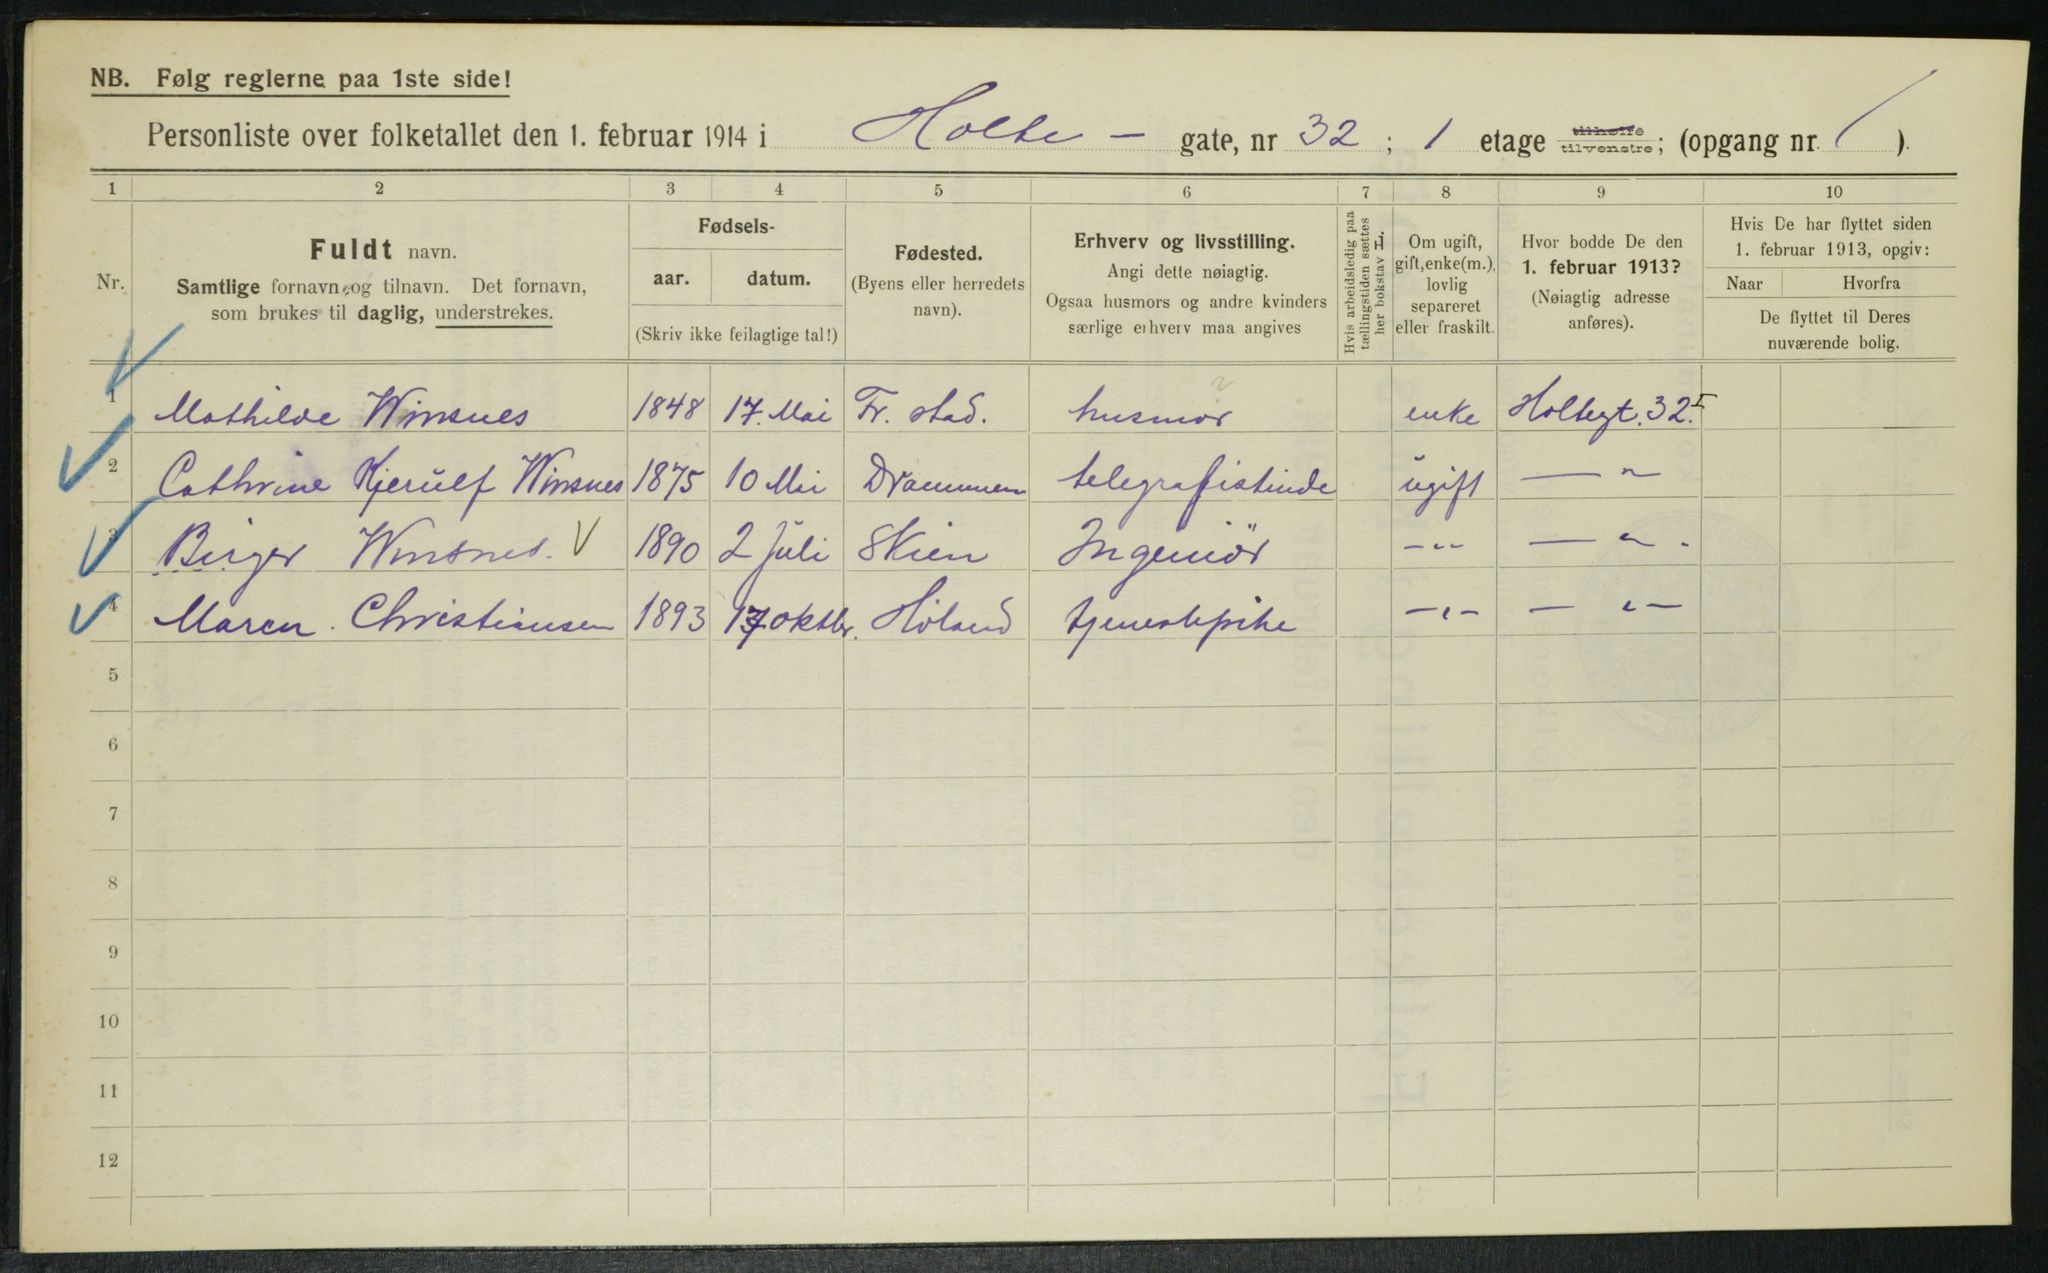 NB. Følg reglerne paa 1ste side!
Personliste over folketallet den 1. februar 1914 i Holte- gate, nr 32; 1 etage tilhøire tilvenstre; (opgang nr. ).
1 2 3 4 5 6 7 8 9 10
Nr.
Fuldt navn.
Samtlige fornavn og tilnavn. Det fornavn,
som brukes til daglig, understrekes.
Fødsels-
aar. datum.
(Skriv ikke feilagtige tal!)
Fødested.
(Byens eller herredets
navn).
Erhverv og livsstilling.
Angi dette nøiagtig.
Ogsaa husmors og andre kvinders
særlige erhverv maa angives
Hvis arbeidsledig paa
tællingstiden sættes
her bokstav L.
Om ugift,
gift, enke(m.),
lovlig
separeret
eller fraskilt.
Hvor bodde De den
1. februar 1913?
(Nøiagtig adresse
anføres).
Hvis De har flyttet siden
1. februar 1913, opgiv:
Naar Hvorfra
De flyttet til Deres
nuværende bolig.
1 Mathilde Winsnes 1848 17. Mai Fr. stad. husmor enke Holtegt. 32 I
2 Cathrine Kjerulf Winsnes 1875 10 Mai Drammen telegrafistinde ugift — " —
3 Birger Winsnes. 1890 2 Juli Skien Ingeniör — " — — " —
4 Maren Christiansen 1893 17 oktbr. Höland tjenestepike — " — — " —
5
6
7
8
9
10
11
12